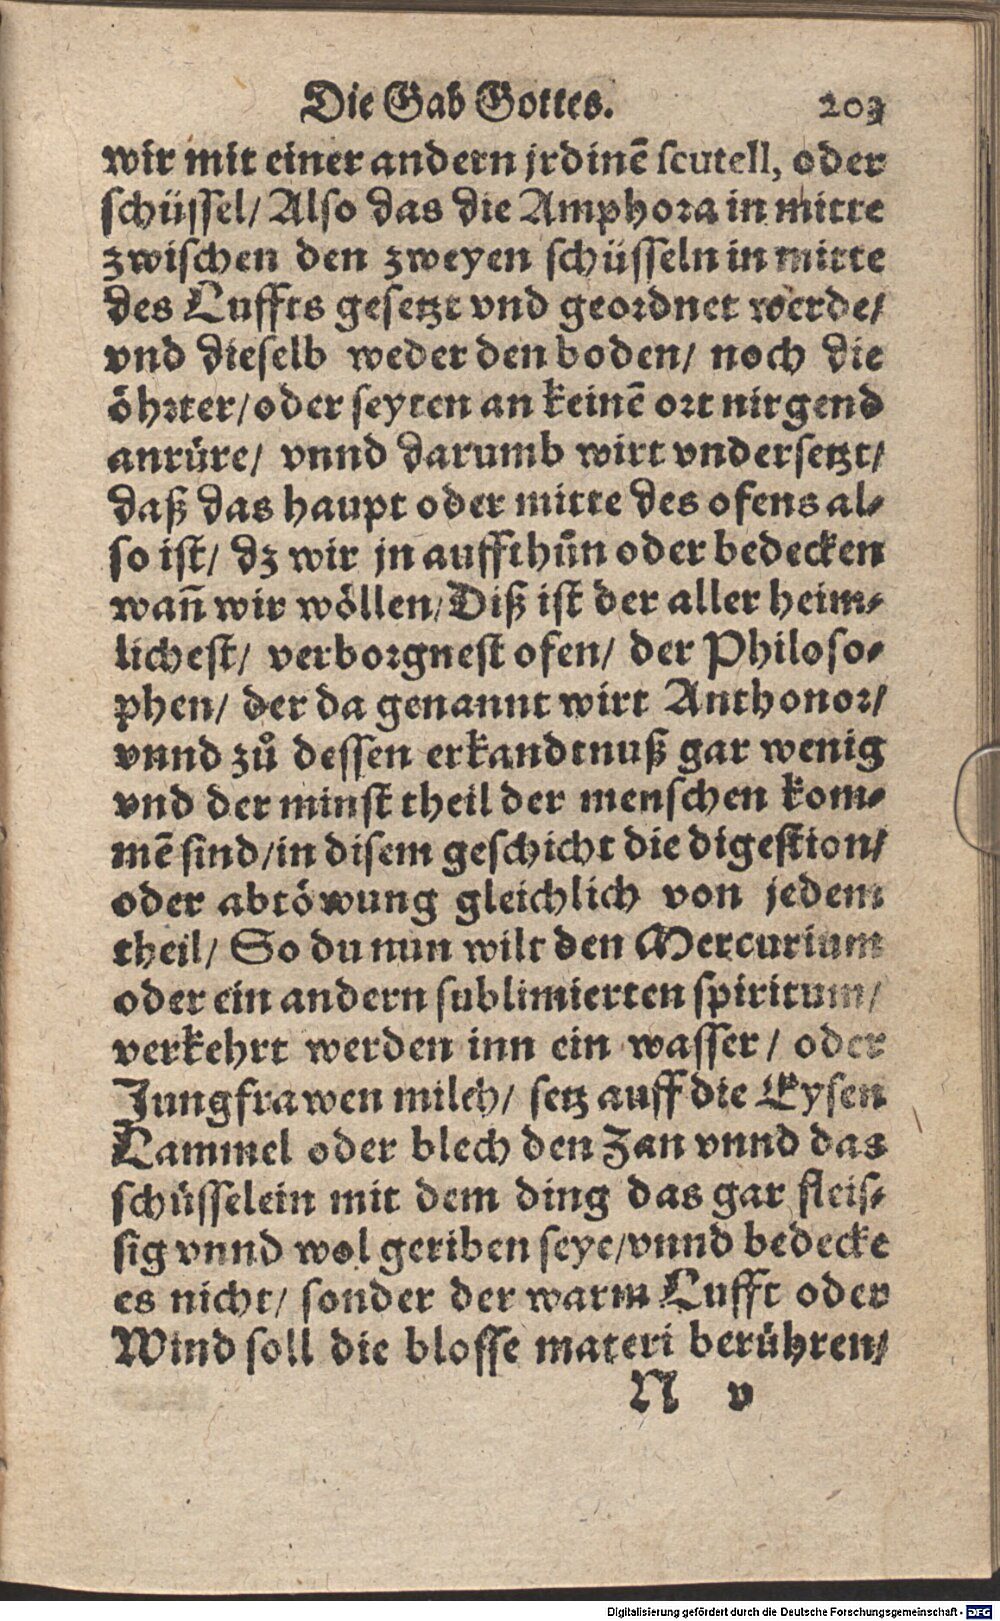 Die Gab Gottes. 203
wir mit einer andern jrdinē scutell, oder
schüssel/ Also das die Amphora in mitte
zwischen den zweyen schüsseln in mitte
des Luffts gesetzt vnd geordnet werde/
vnd dieselb weder den boden/ noch die
öhrter/ oder seyten an keinē ort nirgend
anrüre/ vnnd darumb wirt vndersetzt/
daß das haupt oder mitte des ofens al-
so ist/ dz wir jn auffthůn oder bedecken
wañ wir wöllen/ Diß ist der aller heim-
lichest/ verborgnest ofen/ der Philoso-
phen/ der da genannt wirt Anthonor/
vnnd zů dessen erkandtnuß gar wenig
vnd der minst theil der menschen kom-
mē sind/ in disem geschicht die digestion/
oder abtöwung gleichlich von jedem
theil/ So du nun wilt den Mercurium
oder ein andern sublimierten spiritum/
verkehrt werden inn ein wasser/ oder
Jungfrawen milch/ setz auff die Eysen
Lammel oder blech den Zan vnnd das
schüsselein mit dem ding das gar fleis-
sig vnnd wol geriben seye/ vnnd bedecke
es nicht/ sonder der warm Lufft oder
Wind soll die blosse materi berühren/
N v
Digitalisierung gefördert durch die Deutsche Forschungsgemeinschaft - DFG